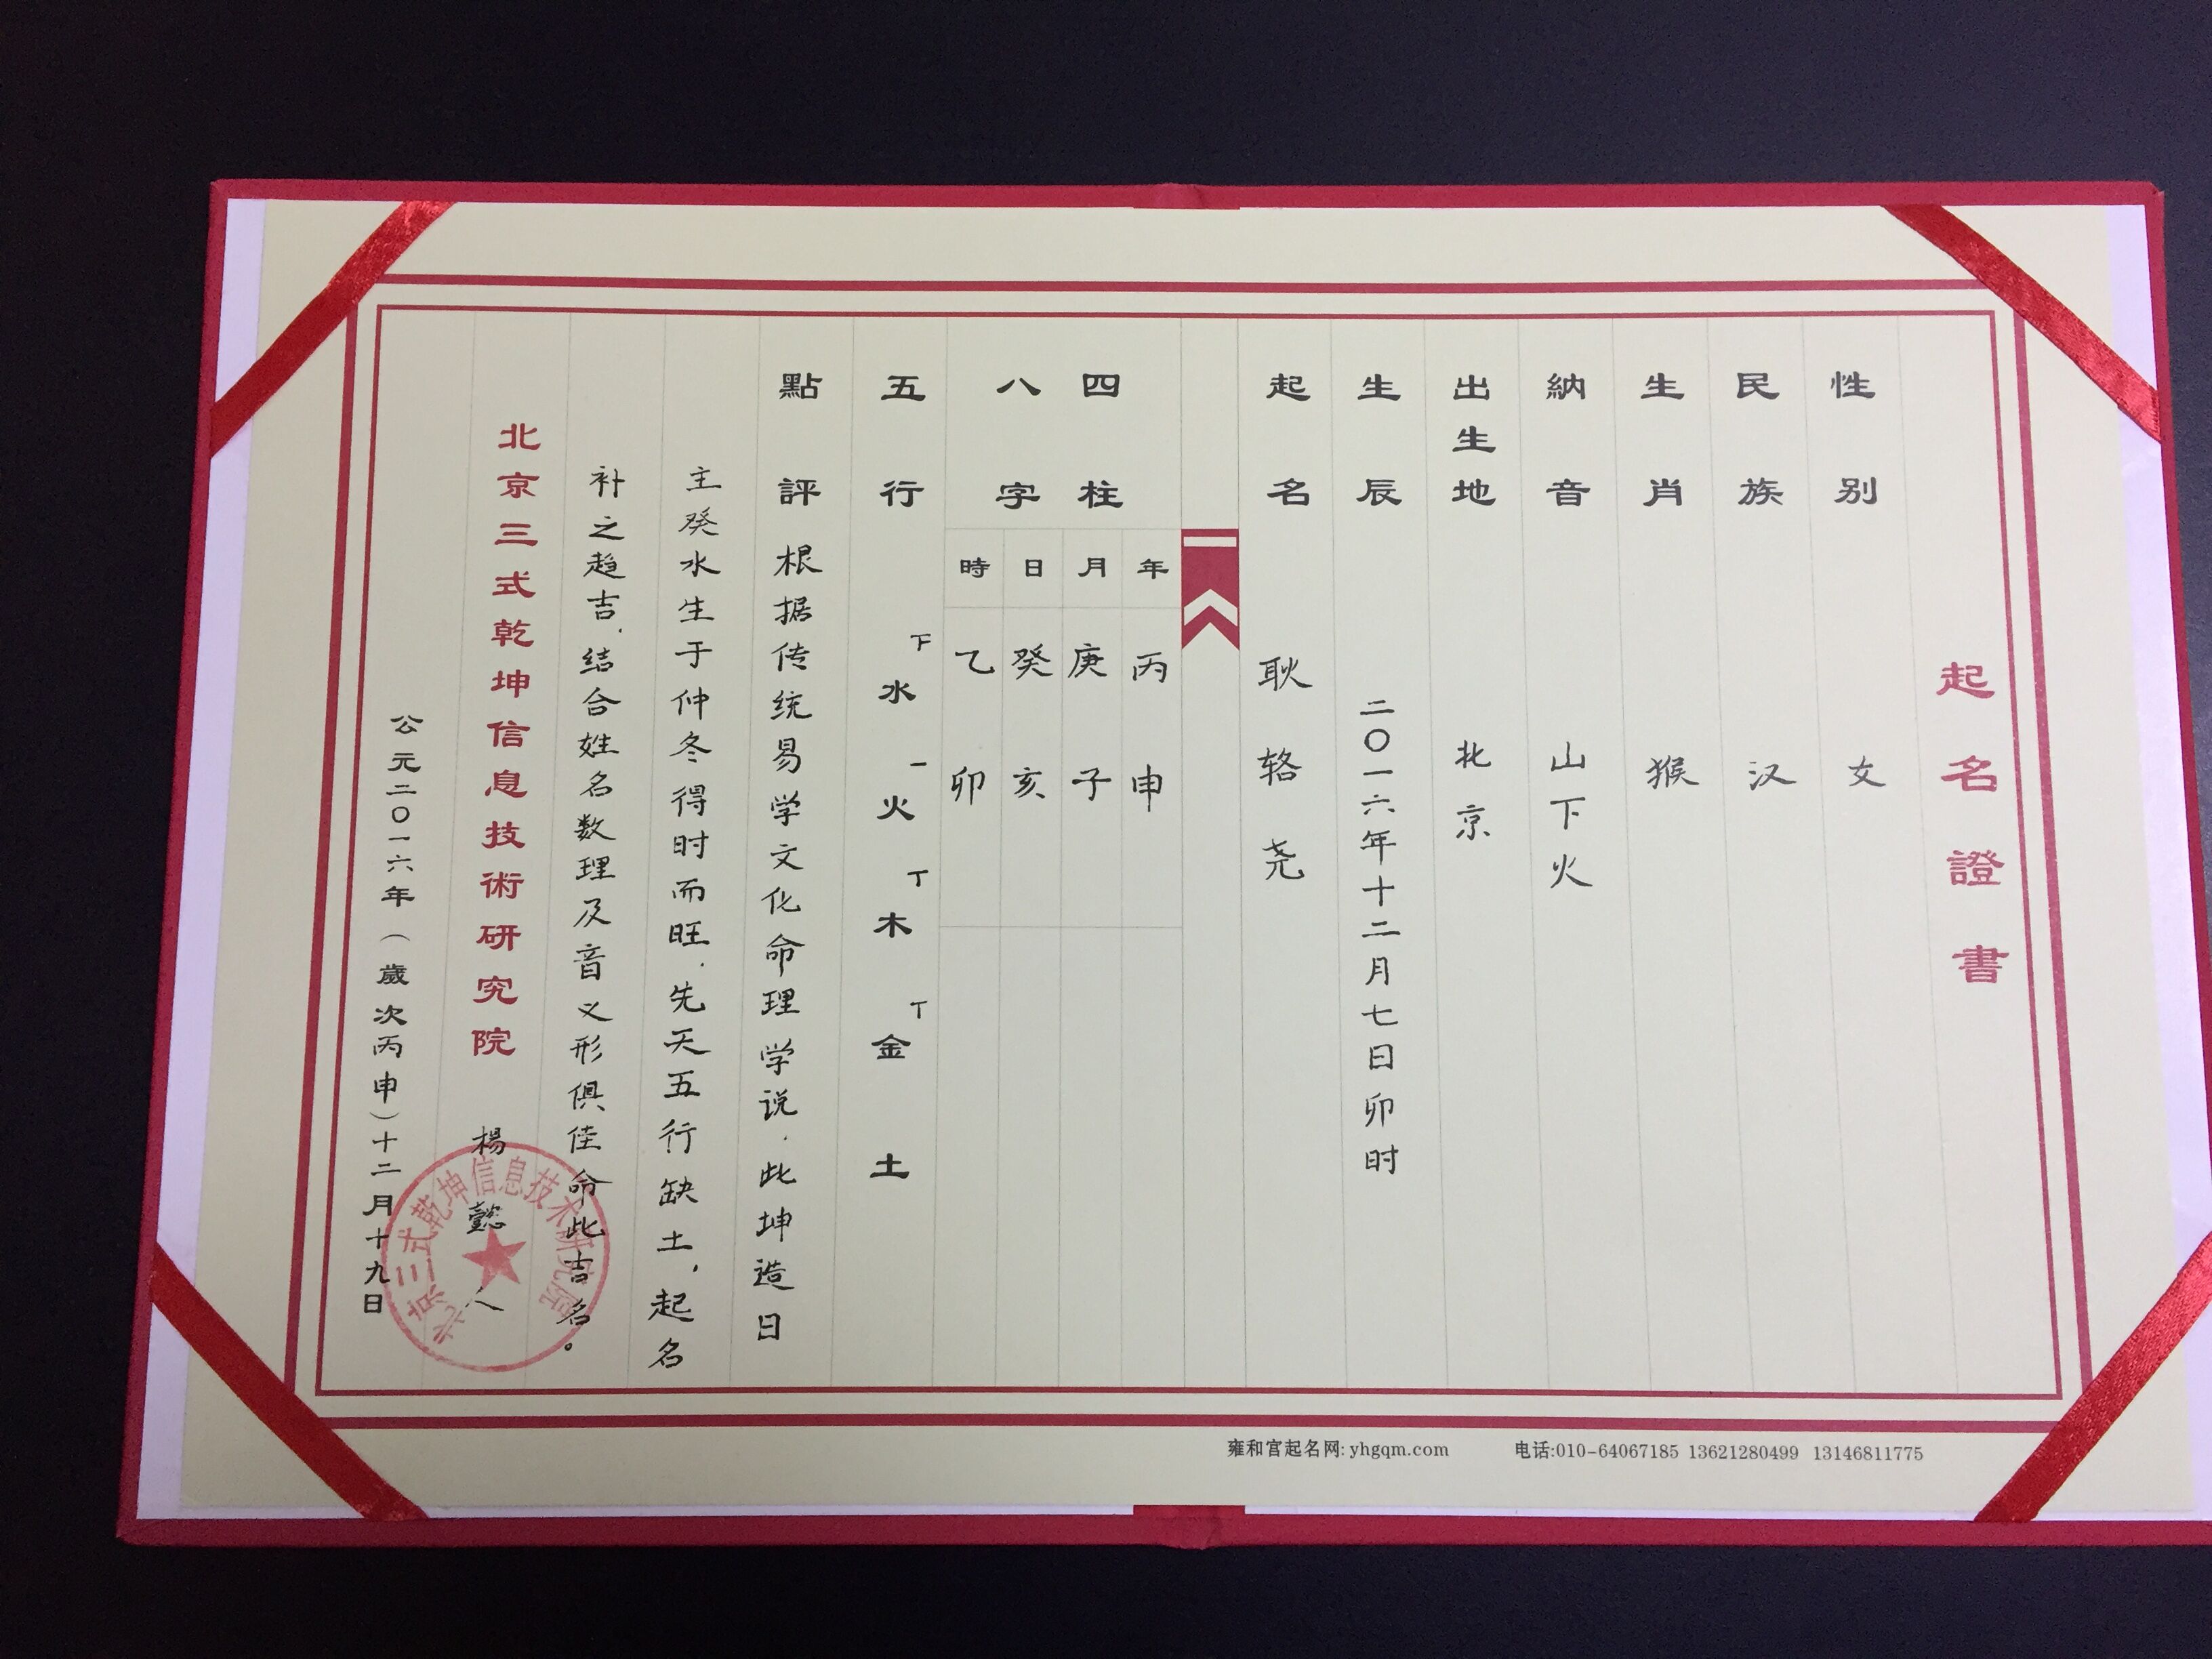 起名證書
性别 女
民族 汉
生肖 猴
納音 山下火
出生地 北京
生辰 二〇一六年十二月七日卯时
起名 耿辂尧
四柱
八字
年 丙申
月 庚子
日 癸亥
時 乙卯
五行 水 一 火 丅 木 丅 金 土
點評 根据传统易学文化命理学说.此坤造日
主癸水生于仲冬得时而旺.先天五行缺土,起名
补之趋吉.结合姓名数理及音义形俱佳命此吉名。
北京三式乾坤信息技術研究院 楊懿人
公元二〇一六年(歲次丙申)十二月十九日
北京三式乾坤信息技术研究院
雍和宫起名网: yhgqm.com 电话:010-64067185 13621280499 13146811775